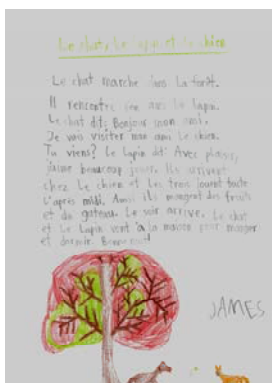 Le chat, Le lapin et Le chien
Le chat marche dans la forêt.
Il rencontre son ami Le lapin.
Le chat dit: Bonjour mon ami.
Je vais visiter mon ami Le chien.
Tu viens? Le lapin dit: Avec plaisir,
j'aime beaucoup jouer. Ils arrivent
chez Le chien et Les trois jouent toute
L'après midi. Aussi ils mangent des fruits
et du gateau. Le soir arrive. Le chat
et Le Lapin vont à la maison pour manger
et dormir. Bonne nuit!
JAMES